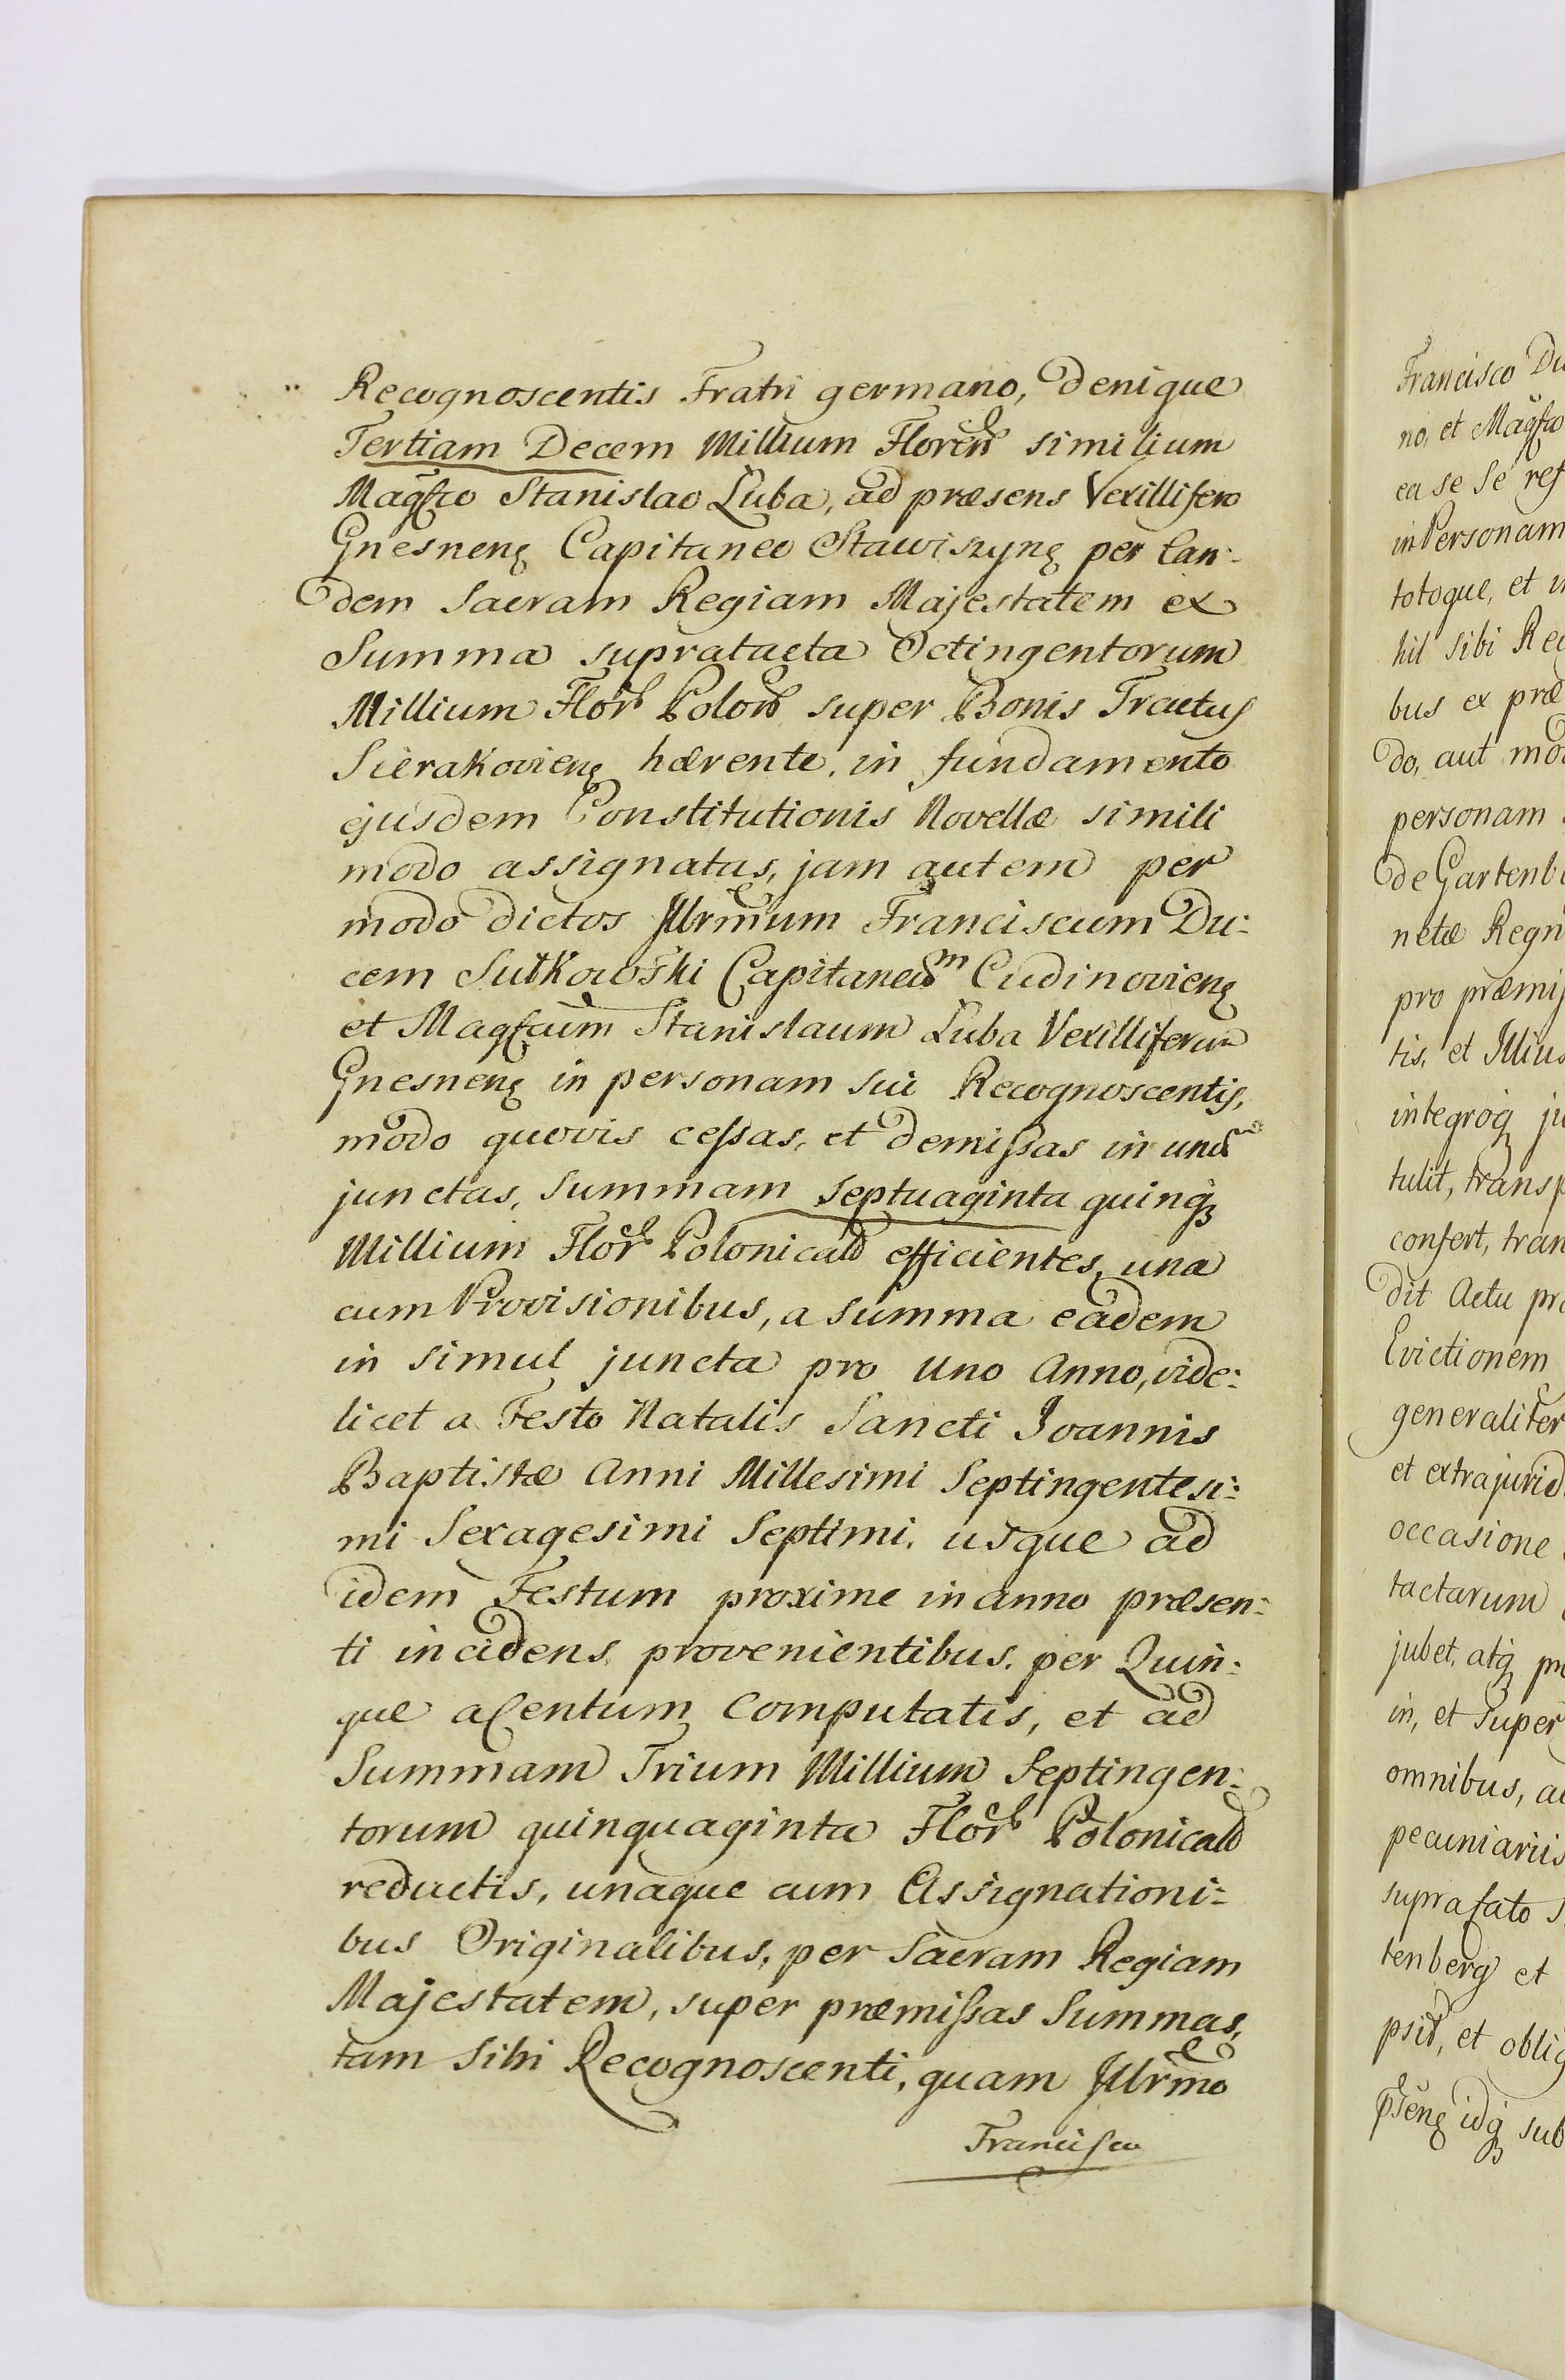 Recognoscentis Fratri germano, denique
Tertiam Decem Millium Floren similium
Magfco Stanislao Łuba, ad præsens Vexillifero
Gnesneng Capitaneo Stawiszyng per Ean:
dem Sacram Regiam Majestatem ex
Summa supratacta Octingentorum
Millium Flor Polon super Bonis Tractus
Sierakovieng hærente, in fundamento
ejusdem Constitutionis Novellæ simili
modo assignatas, jam autem per
modo dictos Jllrmum Franciscum Du:
cem Sułkowski Capitaneum Cudinovieng
et Magfcum Stanislaum Łuba Vexilliferum
Gnesneng in personam sui Recognoscentis,
modo quovis cessas, et demissas in unam
junctas, Summam septuaginta quinq3
Millium Flor Polonical efficientes, una
cum Provisionibus, a summa eadem
in simul juncta pro uno Anno, vide:
licet a Festo Natalis Sancti Joannis
Baptistæ Anni Millesimi Septingentesi:
mi Sexagesimi Septimi, usque ad
idem Festum proxime in anno præsen:
ti incidens, provenientibus, per Quin:
que a Centum Computatis, et ad
Summam Trium Millium Septingen:
torum quinquaginta Flor Polonical
reductis, unaque cum Assignationi=
bus Originalibus, per Sacram Regiam
Majestatem, super præmissas Summas,
tam Sibi Recognoscenti, quam Jllrmo
Francisco
Francisco Du
no, et Magfco
ea se se ref
in Personam
totoque, et in
hil sibi Rec
bus ex præ
do, aut mo
personam
de Gartenb
netæ Regn
pro præmis
tis, et Illius
integroq ju
tulit, transp
confert, tran
dit Actu pr
Evictionem
generaliter
et extrajurid
occasione
tactarum
jubet, atq pr
in, et Super
omnibus, a
pecuniariis
suprafato S
tenberg et
psit, et oblig
pseng idq sub